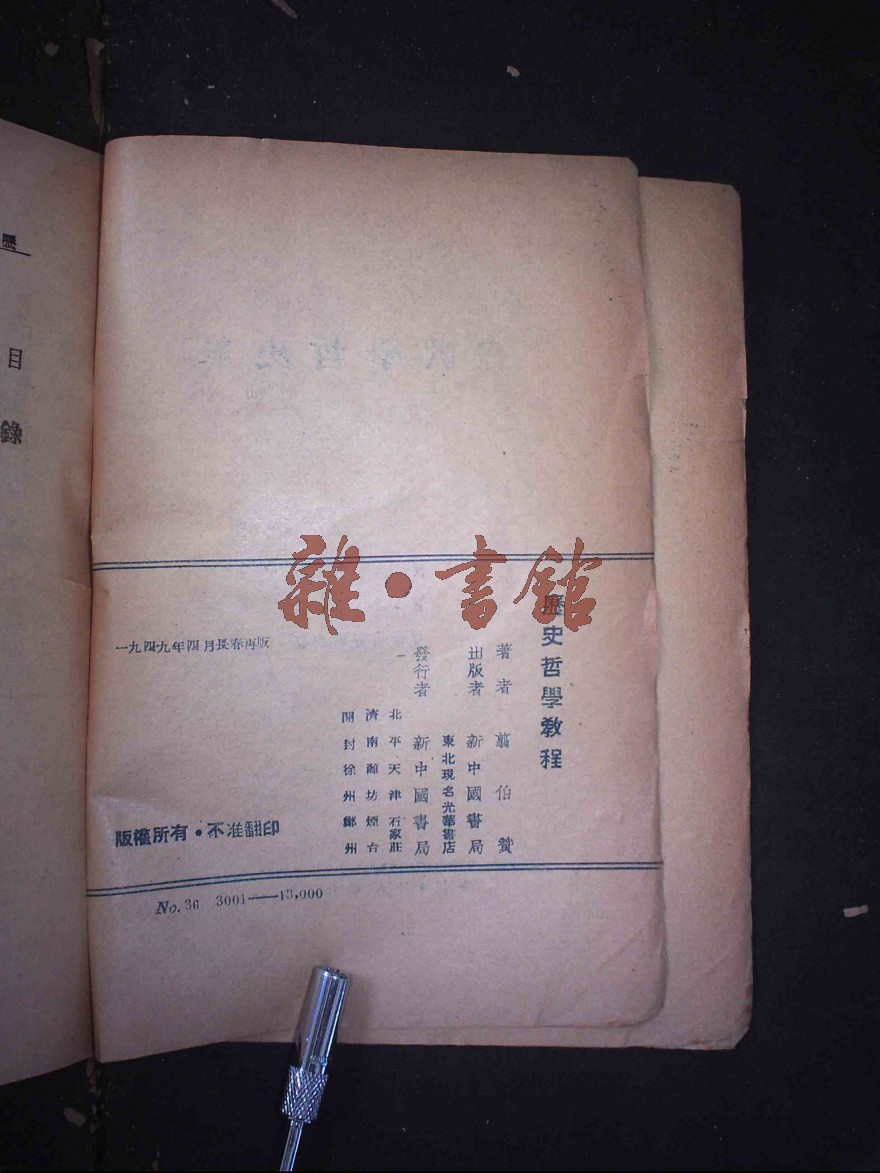 歷史哲學教程
著者 翦伯贊
出版者 新中國書局
東北現名光華書店
發行者 新中國書局
北平 天津 石家莊
濟南 濰坊 煙台
開封 徐州 鄭州
一九四九年四月長春再版
版權所有・不准翻印
No. 36 3001——13,000
目錄
雜・書館